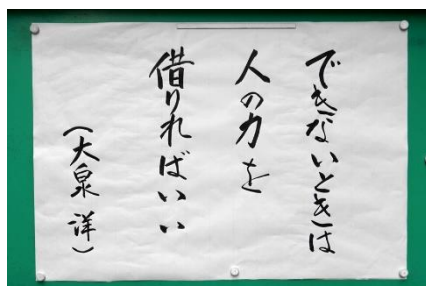 できないときは
人の力を
借りればいい
（大泉洋）